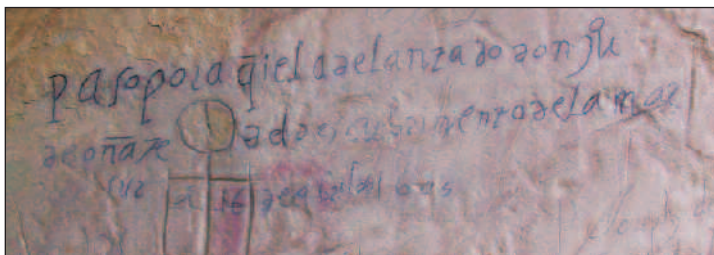 paso por aq̄i el adelantado don jũ
de oñate del descubrimento de la mar
sur a 16 de